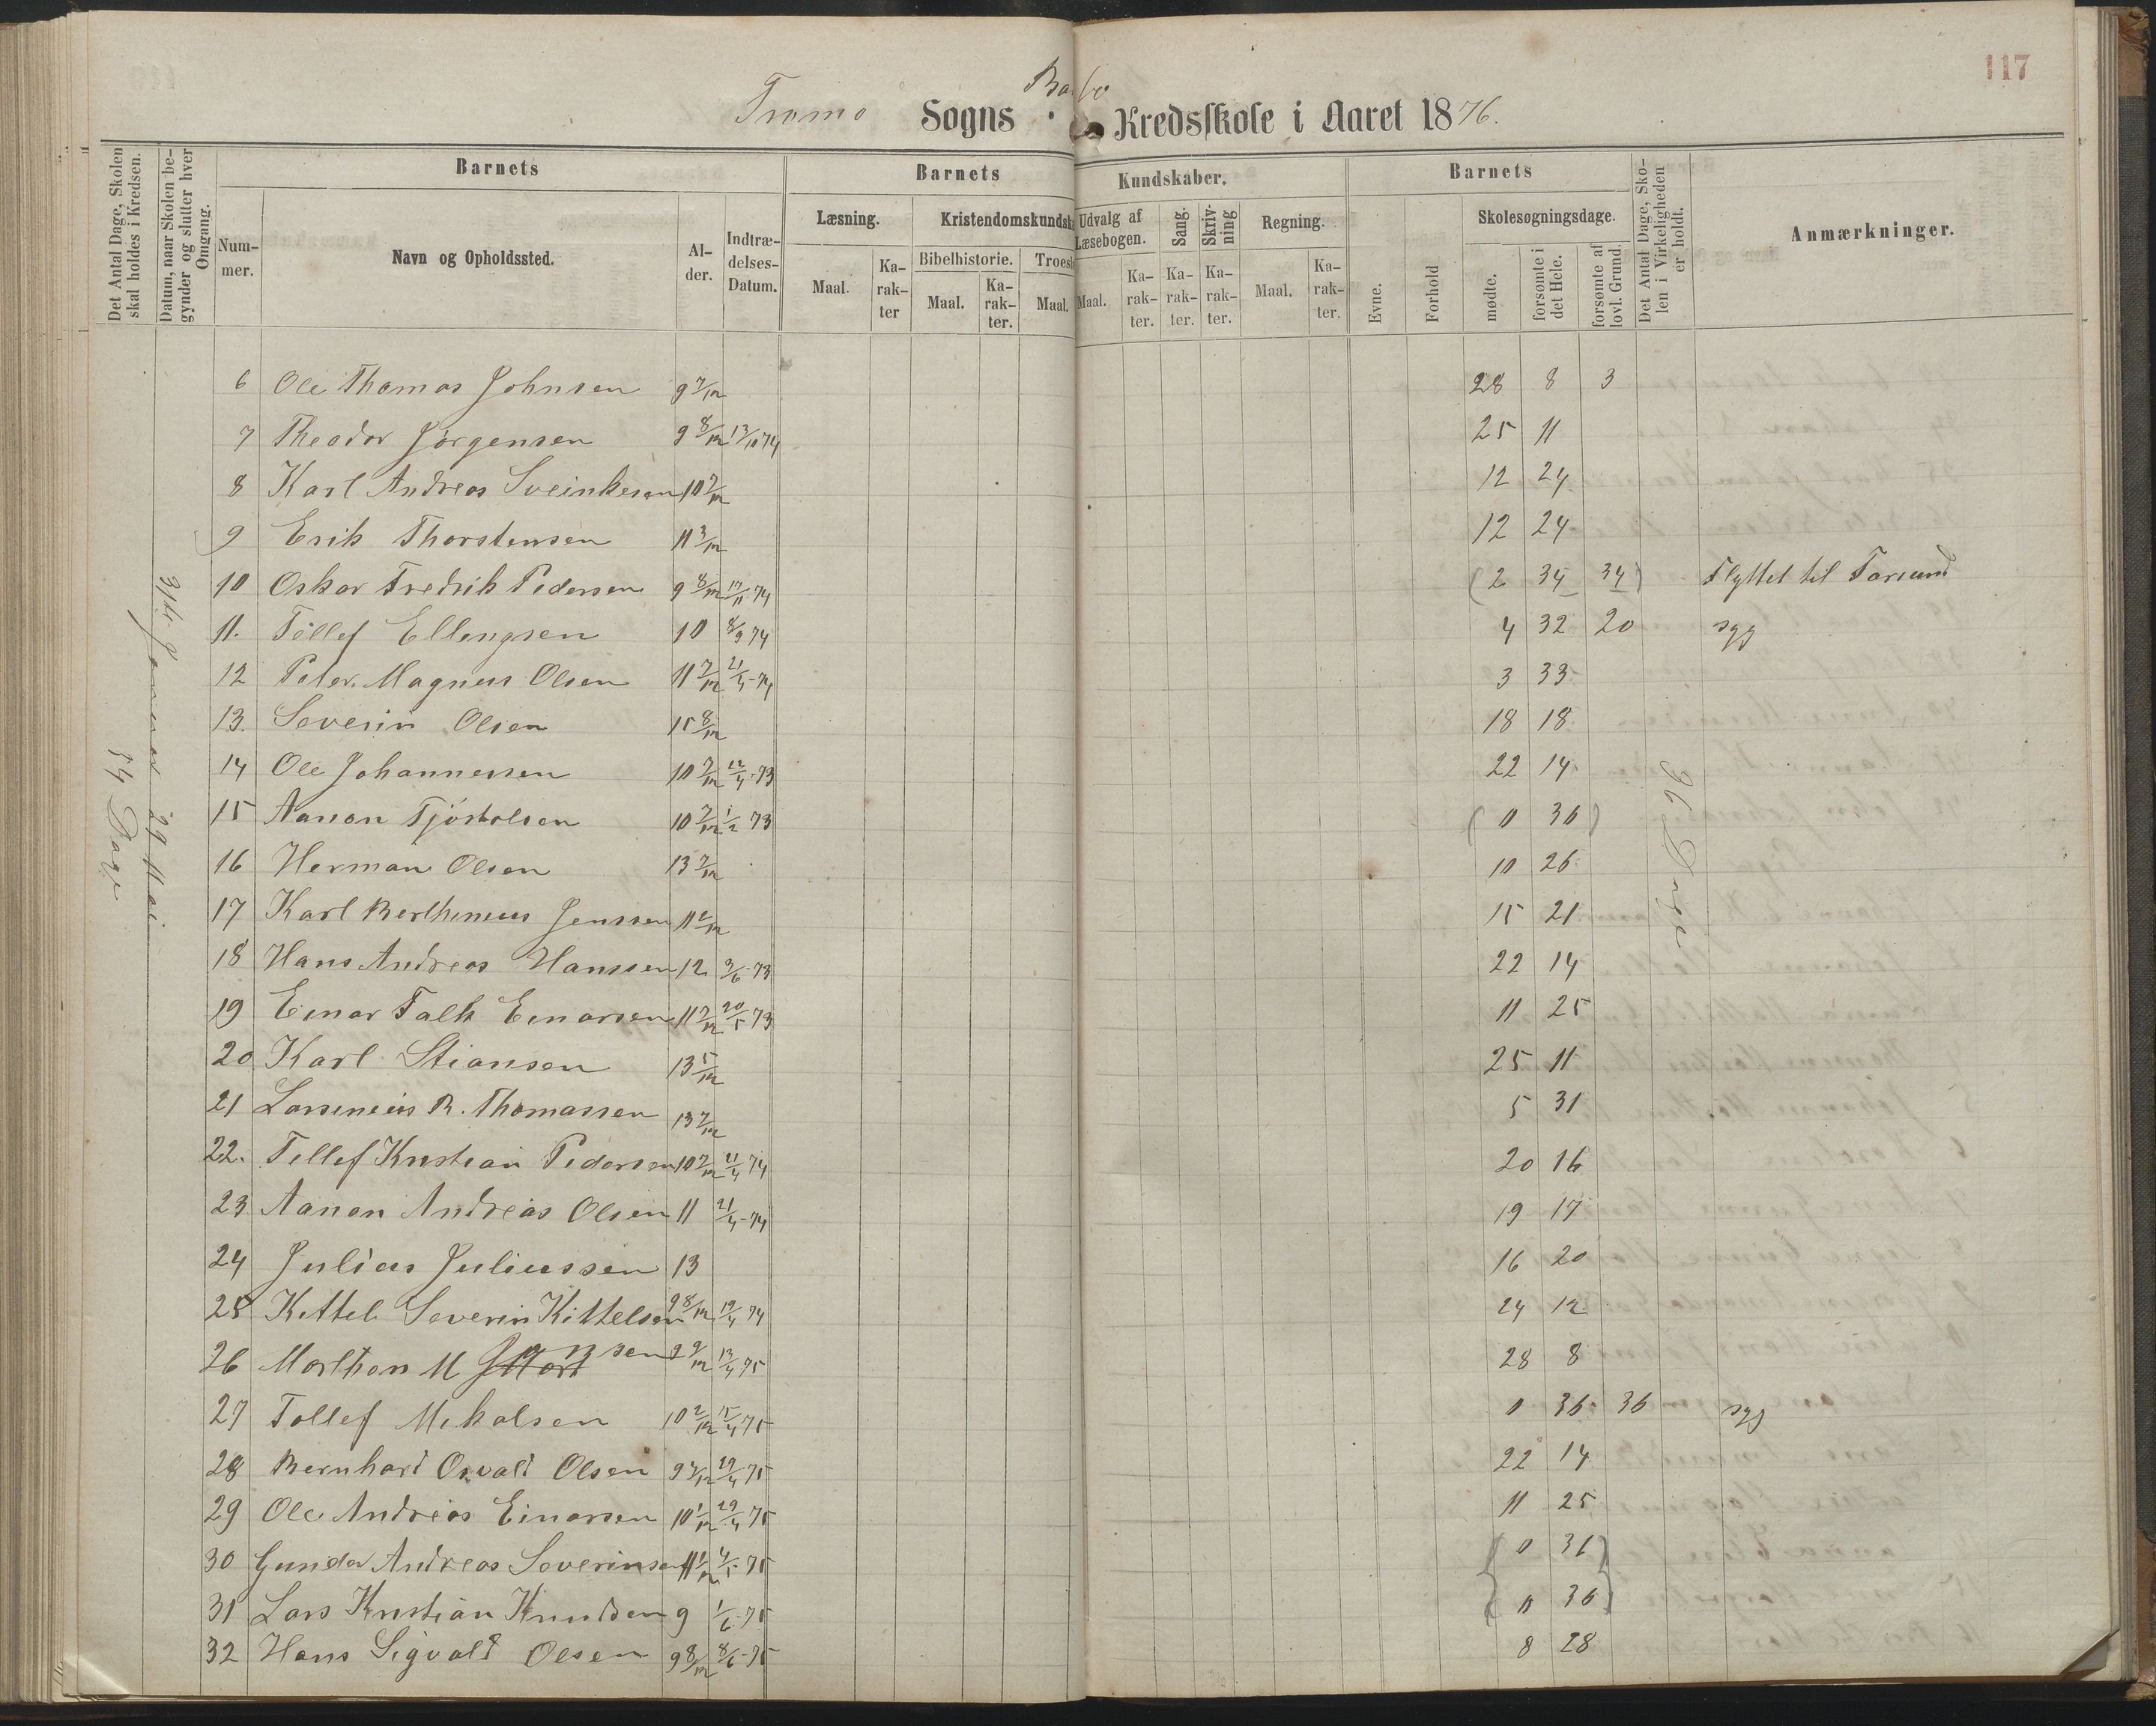 117
Tromø Sogns Barbo Kredsskole i Aaret 1876.
Det Antal Dage, Skolen skal holdes i Kredsen.
Datum, naar Skolen begynder og slutter hver Omgang.
Barnets
Num-
mer.
Navn og Opholdssted.
Al-
der.
Indtræ-
delses-
Datum.
Barnets Kundskaber.
Læsning.
Maal.
Ka-
rak-
ter
Kristendomskundsk
Bibelhistorie.
Maal.
Ka-
rak-
ter.
Troes
Maal.
Udvalg af
Læsebogen.
Maal.
Ka-
rak-
ter.
Sang.
Ka-
rak-
ter.
Skriv-
ning
Ka-
rak-
ter.
Regning.
Maal.
Ka-
rak-
ter.
Barnets
Evne.
Forhold
Skolesøgningsdage.
mødte.
forsømte i det Hele.
forsømte af lovl. Grund.
Det Antal Dage, Sko-
len i Virkeligheden
er holdt.
Anmærkninger.
6 Ole Thomas Johnsen 9 7/12 28 8 3
7 Theodor Jörgensen 9 8/12 13/10 74 25 11
8 Karl Andreas Sveinkesen 10 7/12 12 24
9 Erik Thorstensen 11 3/12 12 24
10 Oskar Fredrik Pedersen 9 8/12 17/11 74 (2 34 34) Flyttet til Farsund
11. Tellef Ellingsen 10 8/9 74 4 32 20 syg
12 Peter Magnus Olsen 11 7/12 21/4-74 3 33
13. Severin Olsen 15 8/12 18 18
14 Ole Johannessen 10 7/12 22/4-73 22 14
15 Aanon Tjöstolsen 10 7/12 1/2 73 (0 36)
16 Herman Olsen 13 7/12 10 26
17 Karl Berthineus Jenssen 11 2/12 15 21
18 Hans Andreas Hanssen 12 3/6-73 22 14
19 Einar Falk Einarsen 11 7/12 20/5 73 11 25
20 Karl Stiansen 13 5/12 25 11
21 Larsineius R. Thomassen 13 7/12 5 31
22. Tellef Kristian Pedersen 10 7/12 21/4 74 20 16
23 Aanon Andreas Olsen 11 21/4-74 19 17
24 Julius Juliussen 13 16 20
25 Kittel Severin Kittelsen 9 8/12 19/4 74 24 12
26 Morthen M Jansen 9 9/12 13/4 75 28 8
27 Tellef Mikalsen 10 2/12 15/4 75 0 36 36 syg
28 Bernhard Osvald Olsen 9 4/12 29/4 75 22 14
29 Ole Andreas Einarsen 10 1/12 29/4 75 11 25
30 Gunder Andreas Severinsen 11 1/12 4/5-75 0 36
31 Lars Kristian Knudsen 9 1/6-75 0 36
32 Hans Sigvald Olsen 9 8/12 8/6-75 8 28
Januar 29 Mai
54 Dage
36 Dage